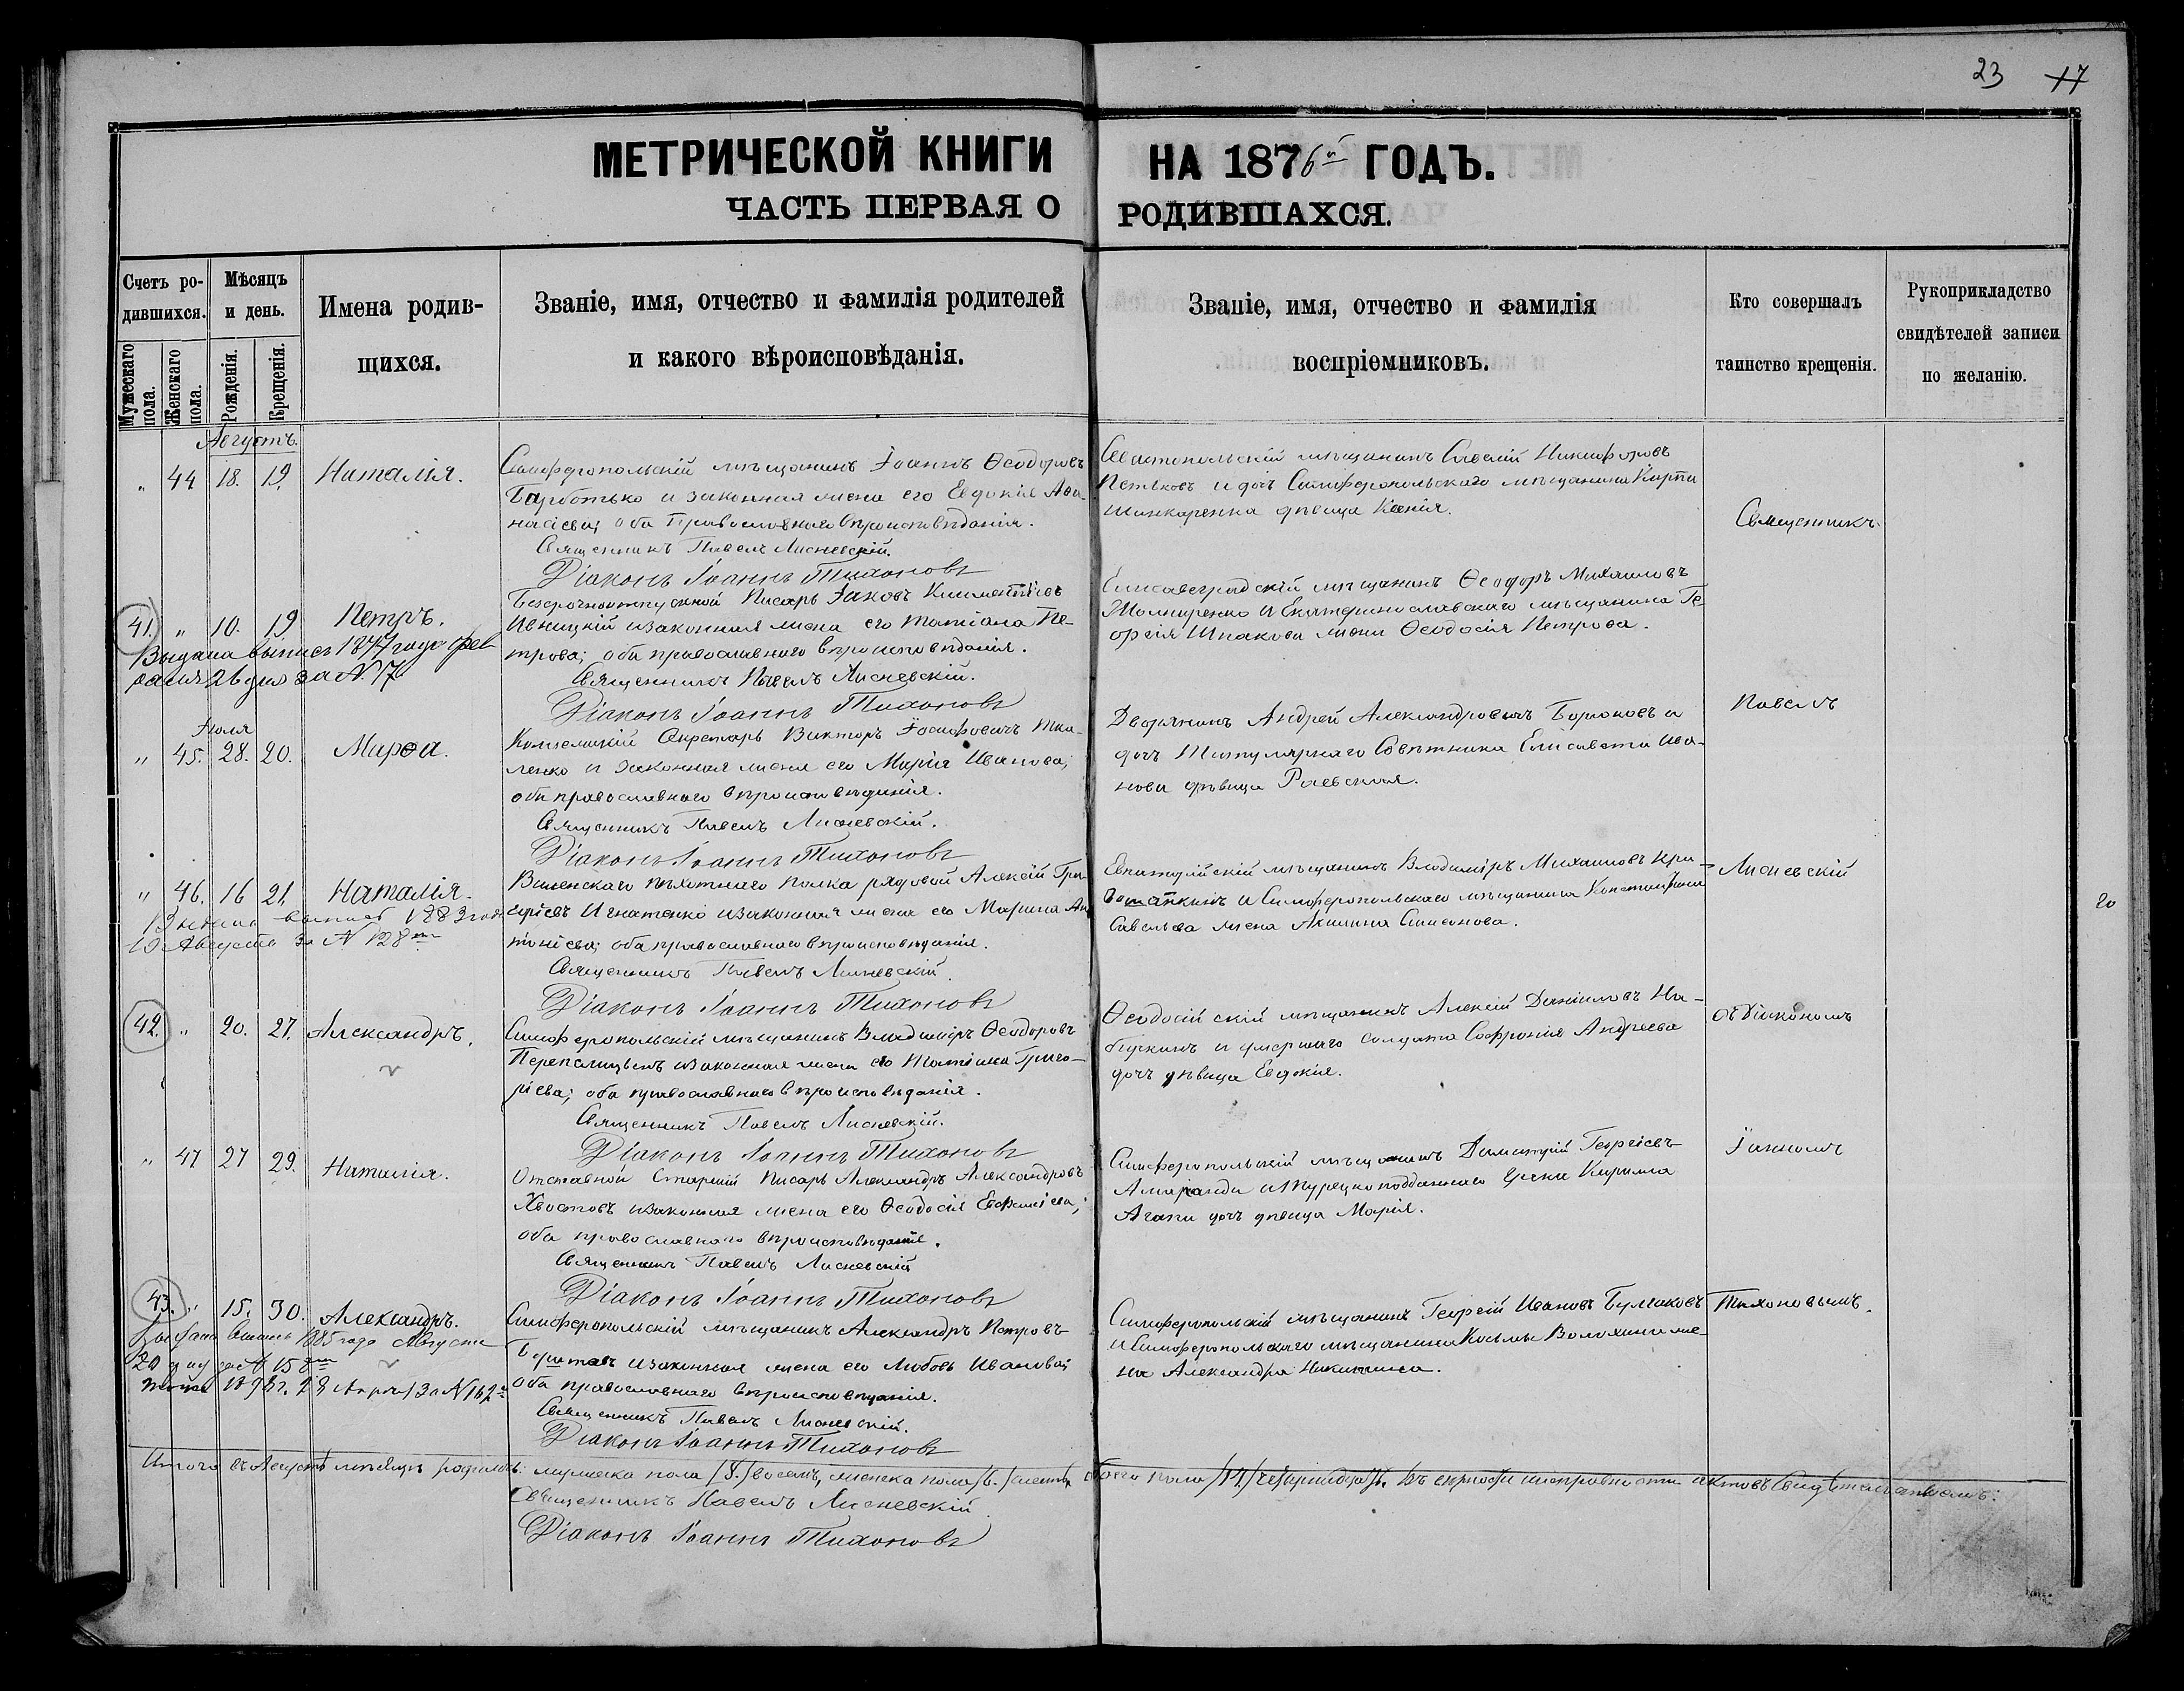 23 17
МЕТРИЧЕСКОЙ КНИГИ НА 1876й ГОДЪ.
ЧАСТЬ ПЕРВАЯ О РОДИВШАХСЯ.
Счетъ ро-
дившихся.
Мужескаго пола.
Женскаго пола.
Мѣсяцъ
и день.
Рожденія.
Крещенія.
Имена родив-
щихся.
Званіе, имя, отчество и фамилія родителей
и какого вѣроисповѣданія.
Званіе, имя, отчество и фамилія
воспріемниковъ.
Кто совершалъ
таинство крещенія.
Рукоприкладство
свидѣтелей записи
по желанію.
Августъ.
„ 44 18. 19. Наталія.
Симферопольскій мѣщанинъ Іоаннъ Ѳеодоровъ
Барботько и законная жена его Евдокія Аѳа-
насіева; оба Православнаго вѣроисповѣданія.
Священникъ Павелъ Лисневскій.
Діаконъ Іоаннъ Тихоновъ
Севастопольскій мѣщанинъ Савелій Никифоровъ
Петлковъ и дочь Симферопольскаго мѣщанина Карпа
Шинкаренка дѣвица Ксенія.
Священникъ
41. „ 10. 19 Петръ.
Выдана выпись 1877 года фев
раля 26 дня за № 17
Безсрочноотпускной Писарь Іаковъ Климентіевъ
Ивницкій и законная жена его Татіана Пе-
трова; оба православнаго вѣроисповѣданія.
Священникъ Павелъ Лисневскій.
Діаконъ Іоаннъ Тихоновъ
Елисаветградскій мѣщанинъ Ѳеодоръ Михаиловъ
Жолниренко и Екатеринославскаго мѣщанина Ге-
оргія Шпакова жена Ѳеодосія Петрова.
Павелъ
Іюля
„ 45. 28. 20. Марѳа.
Коллежскій Секретарь Викторъ Іосифовичъ Тка-
ленко и законная жена его Марія Иванова;
оба православнаго вѣроисповѣданія.
Священникъ Павелъ Лисневскій.
Діаконъ Іоаннъ Тихоновъ
Дворянинъ Андрей Александровичъ Бароковъ и
дочь Титулярнаго Совѣтника Елисавета Ива-
нова дѣвица Раевская.
„ 46. 16 21. Наталія.
Выдана выпись 1882 года
10 Августа за № 128м
Виленскаго пѣхотнаго полка рядовой Алексій Гри-
горіевъ Игнатенко и законная жена его Марина Ан-
тоніева; оба православнаго вѣроисповѣданія.
Священникъ Павелъ Лисневскій.
Діаконъ Іоаннъ Тихоновъ
Евпаторійскій мѣщанинъ Владиміръ Михаиловъ Кри-
вошапкинъ и Симферопольскаго мѣщанина Константина
Савельева жена Акилина Симеонова.
Лисневскій
20
42. „ 20. 27. Александръ.
Симферопольскій мѣщанинъ Владиміръ Ѳеодоровъ
Перепелицынъ и законная жена его Татіана Григо-
ріева; оба православнаго вѣроисповѣданія.
Священникъ Павелъ Лисневскій.
Діаконъ Іоаннъ Тихоновъ
Ѳеодосійскій мѣщанинъ Алексій Даніиловъ На-
бучкинъ и умершаго солдата Софронія Андреева
дочь дѣвица Евдокія.
съ Діакономъ
„ 47 27 29. Наталія.
Отставной Старшій Писарь Александръ Александровъ
Хвостовъ и законная жена его Ѳеодосія Евфиміева;
оба православнаго вѣроисповѣданія.
Священникъ Павелъ Лисневскій
Діаконъ Іоаннъ Тихоновъ
Симферопольскій мѣщанинъ Димитрій Георгіевъ
Амаранди и Турецкоподданнаго Грека Кирилла
Агапи дочь дѣвица Марія.
Іоанномъ
43. „ 15. 30. Александръ.
Выдана выпись 1885 года Августа
20 дня за № 158м
тоже 1898 г. 28 Апр за № 162м
Симферопольскій мѣщанинъ Александръ Петровъ
и законная жена его Любовь Иванова;
оба православнаго вѣроисповѣданія.
Священникъ Павелъ Лисневскій.
Діаконъ Іоаннъ Тихоновъ
Симферопольскій мѣщанинъ Георгій Ивановъ Булгаковъ
и Симферопольскаго мѣщанина Косьмы Волохина же-
на Александра Никитина.
Тихоновымъ.
Итого въ Августѣ мѣсяцѣ родилось: мужеска пола /8./ восемь, женска пола /6./ шесть, обоего пола /14./ четырнадцать. Въ вѣрности и исправности актовъ свидѣтельствуемъ:
Священникъ Павелъ Лисневскій
Діаконъ Іоаннъ Тихоновъ